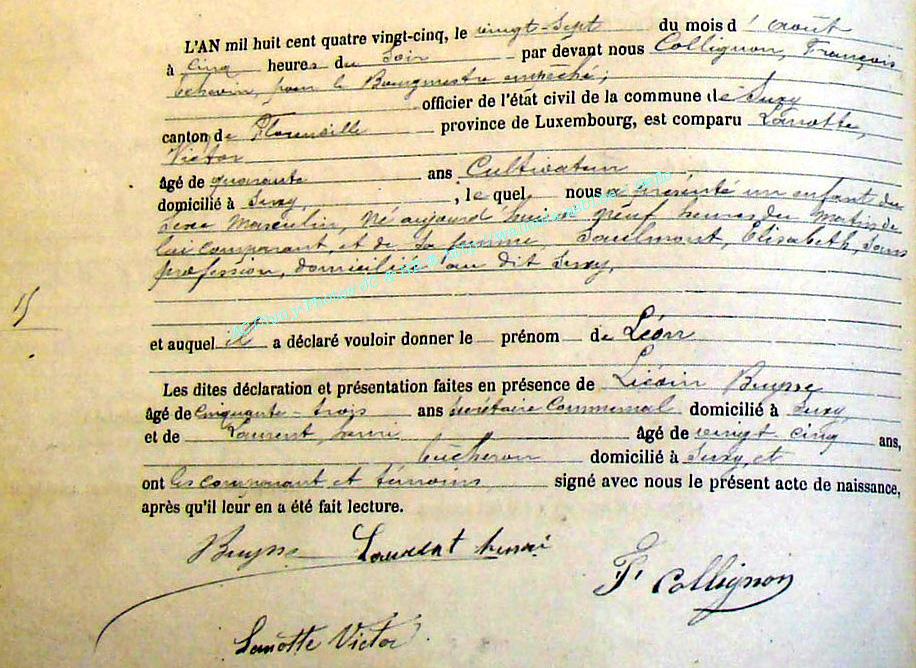 L'AN mil huit cent quatre vingt-cinq, le vingt-sept du mois d'août
à cinq heures du soir par devant nous Collignon, François
échevin, pour le Bourgmestre empêché;
officier de l'état civil de la commune de Suxy
canton de Florenville province de Luxembourg, est comparu Lanotte,
Victor
âgé de quarante ans Cultivateur
domicilié à Suxy, , lequel nous a présenté un enfant du
sexe Masculin, né aujourd'hui à neuf heures du matin de
lui comparant et de sa femme, Saulmont, Elisabeth, sans
profession, domiciliée au dit Suxy,
15
et auquel il a déclaré vouloir donner le prénom de Léon
Les dites déclaration et présentation faites en présence de Liévin Buysse
âgé de cinquante-trois ans secrétaire Communal domicilié à Suxy
et de Laurent, henri âgé de vingt cinq ans,
bûcheron domicilié à Suxy, et
ont les comparant et témoins, signé avec nous le présent acte de naissance,
après qu'il leur en a été fait lecture.
Buysse Laurent henri
F Collignon
Lanotte Victor